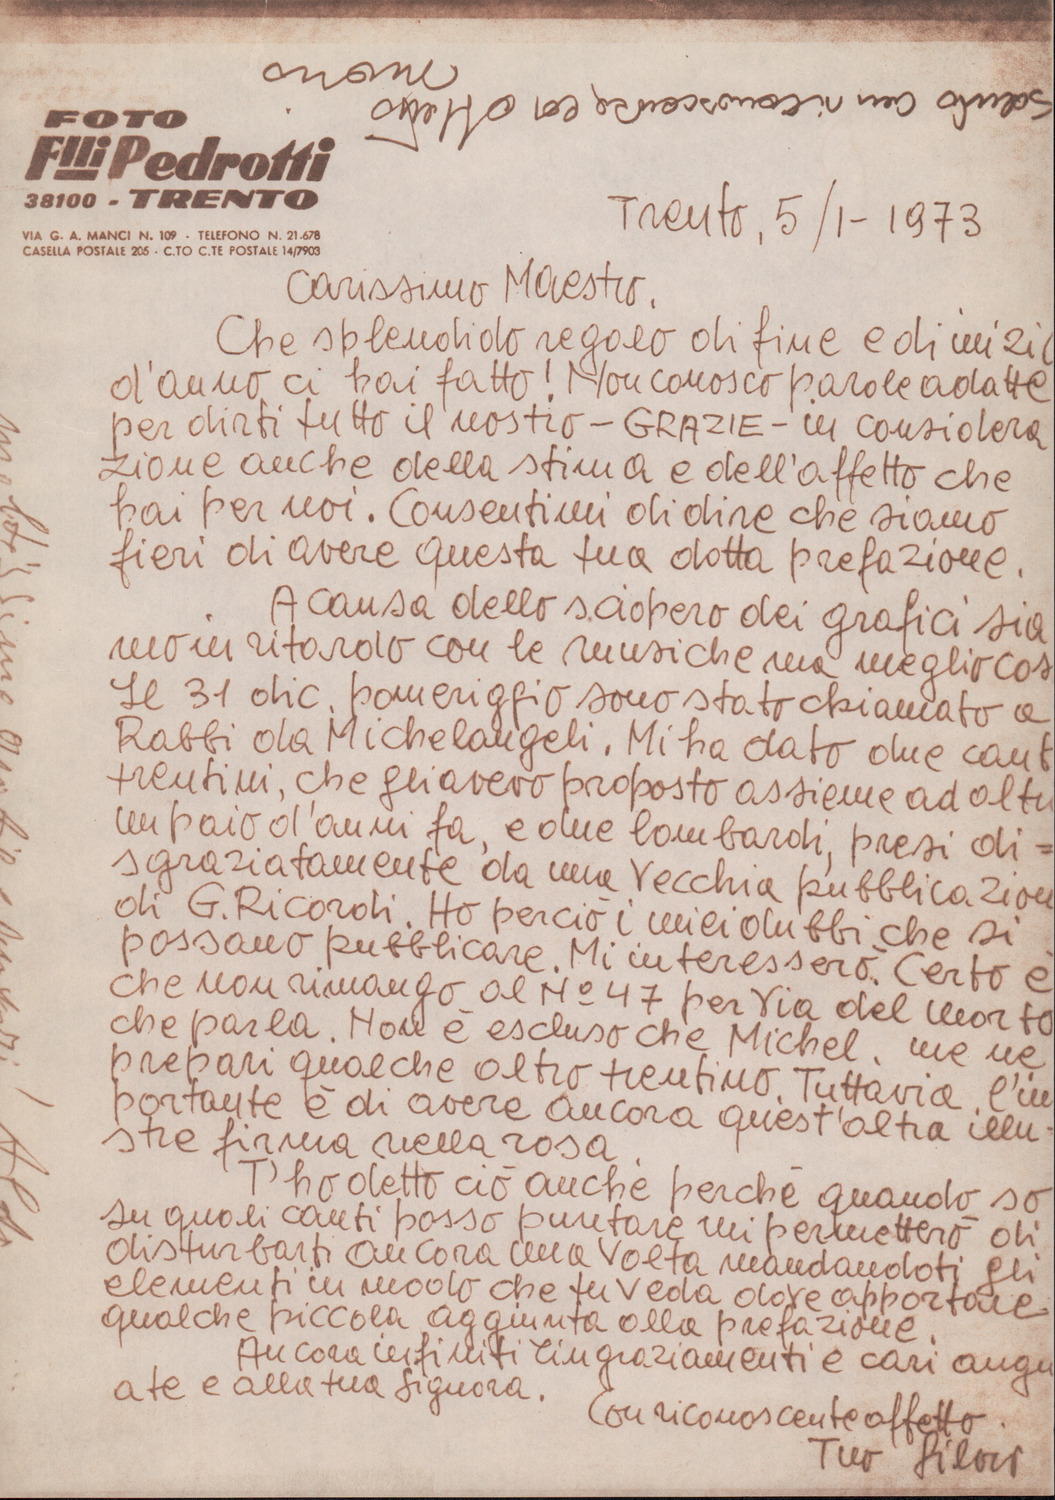 FOTO
Flli Pedrotti
38100 - TRENTO
VIA G. A. MANCI N. 109 - TELEFONO N. 21.678
CASELLA POSTALE 205 - C.TO C.TE POSTALE 14/7903
Trento, 5/1-1973
Carissimo Maestro.
Che splendido regalo di fine e di inizi
d'anno ci hai fatto! Non conosco parole adatte
per dirti tutto il nostro - GRAZIE - in considera
zione anche della stima e dell'affetto che
hai per noi. Consentimi di dire che siamo
fieri di avere questa tua dotta prefazione.
A causa dello sciopero dei grafici sia
mo in ritardo con le musiche ma meglio cos
Il 31 dic. pomeriggio sono stato chiamato a
Rabbi da Michelangeli. Mi ha dato due cant
trentini, che gli avevo proposto assieme ad altri
un paio d'anni fa, e due lombardi, presi di=
sgraziatamente da una vecchia pubblicazion
di G. Ricordi. Ho perciò i miei dubbi che si
possano pubblicare. Mi interesserò. Certo è
che non rimango al Nº 47 per via del morto
che parla. Non è escluso che Michel. me ne
prepari qualche altro trentino. Tuttavia l'im
portante è di avere ancora quest'altra illu-
stre firma nella rosa.
T'ho detto ciò anche perchè quando so
su quali canti posso puntare mi permetterò di
disturbarti ancora una volta mandandoti gli
elementi in modo che tu veda dove apportare
qualche piccola aggiunta alla prefazione.
Ancora infiniti ringraziamenti e cari augu
a te e alla tua Signora.
Con riconoscente affetto.
Tuo Silvio
moltissimo grato e auguri! Aldo
Saluto con riconoscenza ed affetto
Mario